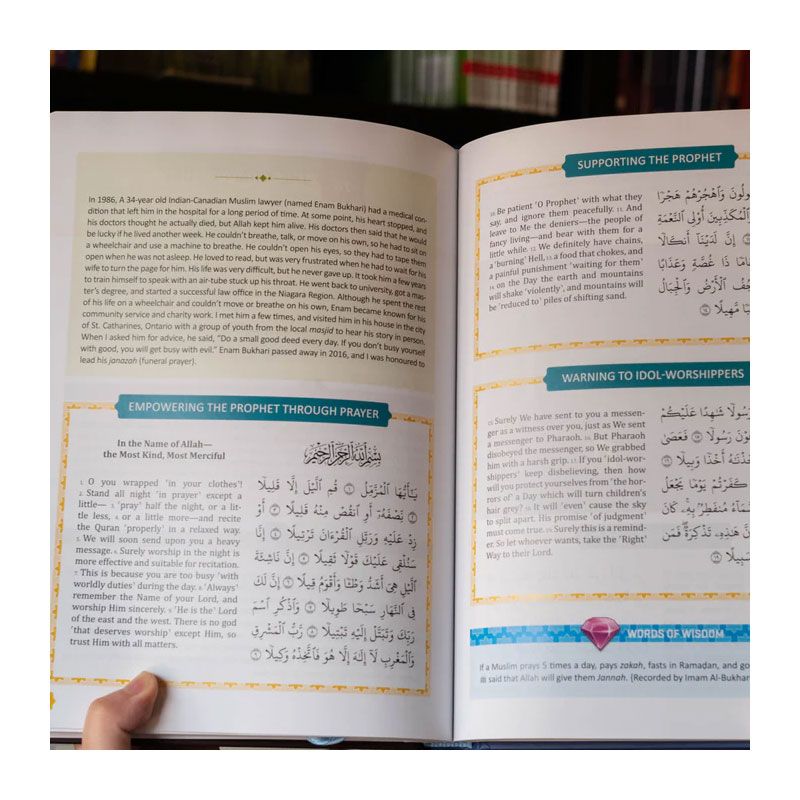 In 1986, A 34-year old Indian-Canadian Muslim lawyer (named Enam Bukhari) had a medical con-
dition that left him in the hospital for a long period of time. At some point, his heart stopped, and
his doctors thought he actually died, but Allah kept him alive. His doctors then said that he would
be lucky if he lived another week. He couldn't breathe, talk, or move on his own, so he had to sit on
a wheelchair and use a machine to breathe. He couldn't open his eyes, so they had to tape them
open when he was not asleep. He loved to read, but was very frustrated when he had to wait for his
wife to turn the page for him. His life was very difficult, but he never gave up. It took him a few years
to train himself to speak with an air-tube stuck up his throat. He went back to university, got a mas-
ter's degree, and started a successful law office in the Niagara Region. Although he spent the rest
of his life on a wheelchair and couldn't move or breathe on his own, Enam became known for his
community service and charity work. I met him a few times, and visited him in his house in the city
of St. Catharines, Ontario with a group of youth from the local masjid to hear his story in person.
When I asked him for advice, he said, "Do a small good deed every day. If you don't busy yourself
with good, you will get busy with evil." Enam Bukhari passed away in 2016, and I was honoured to
lead his janazah (funeral prayer).
EMPOWERING THE PROPHET THROUGH PRAYER
In the Name of Allah—
the Most Kind, Most Merciful
بِسْمِ ٱللَّهِ ٱلرَّحْمَٰنِ ٱلرَّحِيمِ
1. O you wrapped 'in your clothes'!
2. Stand all night 'in prayer' except a
little— 3. 'pray' half the night, or a lit-
tle less, 4. or a little more—and recite
the Quran 'properly' in a relaxed way.
5. We will soon send upon you a heavy
message. 6. Surely worship in the night is
more effective and suitable for recitation.
7. This is because you are too busy 'with
worldly duties' during the day. 8. 'Always'
remember the Name of your Lord, and
worship Him sincerely. 9. 'He is the' Lord
of the east and the west. There is no god
'that deserves worship' except Him, so
trust Him with all matters.
يَـٰٓأَيُّهَا ٱلْمُزَّمِّلُ ۝١ قُمِ ٱلَّيْلَ إِلَّا قَلِيلًا
۝٢ نِّصْفَهُۥٓ أَوِ ٱنقُصْ مِنْهُ قَلِيلًا ۝٣ أَوْ
زِدْ عَلَيْهِ وَرَتِّلِ ٱلْقُرْءَانَ تَرْتِيلًا ۝٤ إِنَّا
سَنُلْقِى عَلَيْكَ قَوْلًا ثَقِيلًا ۝٥ إِنَّ نَاشِئَةَ
ٱلَّيْلِ هِىَ أَشَدُّ وَطْـًٔا وَأَقْوَمُ قِيلًا ۝٦ إِنَّ لَكَ
فِى ٱلنَّهَارِ سَبْحًا طَوِيلًا ۝٧ وَٱذْكُرِ ٱسْمَ
رَبِّكَ وَتَبَتَّلْ إِلَيْهِ تَبْتِيلًا ۝٨ رَّبُّ ٱلْمَشْرِقِ
وَٱلْمَغْرِبِ لَآ إِلَـٰهَ إِلَّا هُوَ فَٱتَّخِذْهُ وَكِيلًا ۝٩
SUPPORTING THE PROPHET
10. Be patient 'O Prophet' with what they
say, and ignore them peacefully. 11. And
leave to Me the deniers—the people of
fancy living—and bear with them for a
little while. 12. We definitely have chains,
a 'burning' Hell, 13. a food that chokes, and
a painful punishment 'waiting for them'
14. on the Day the earth and mountains
will shake 'violently', and mountains will
be 'reduced to' piles of shifting sand.
وَٱهْجُرْهُمْ هَجْرًا
وَٱلْمُكَذِّبِينَ أُو۟لِى ٱلنَّعْمَةِ
إِنَّ لَدَيْنَآ أَنكَالًا
ذَا غُصَّةٍ وَعَذَابًا
ٱلْأَرْضُ وَٱلْجِبَالُ
مَّهِيلًا ۝١٤
WARNING TO IDOL-WORSHIPPERS
15. Surely We have sent to you a messen-
ger as a witness over you, just as We sent
a messenger to Pharaoh. 16. But Pharaoh
disobeyed the messenger, so We grabbed
him with a harsh grip. 17. If you 'idol-wor-
shippers' keep disbelieving, then how
will you protect yourselves from 'the hor-
rors of' a Day which will turn children's
hair grey? 18. It will 'even' cause the sky
to split apart. His promise 'of judgment'
must come true. 19. Surely this is a remind-
er. So let whoever wants, take the 'Right'
Way to their Lord.
رَسُولًا شَـٰهِدًا عَلَيْكُمْ
رَسُولًا ۝١٥ فَعَصَىٰ
أَخْذًا وَبِيلًا ۝١٦
كَفَرْتُمْ يَوْمًا يَجْعَلُ
مُنفَطِرٌۢ بِهِۦ ۚ كَانَ
هَـٰذِهِۦ تَذْكِرَةٌ ۖ فَمَن
سَبِيلًا ۝١٩
WORDS OF WISDOM
If a Muslim prays 5 times a day, pays zakah, fasts in Ramadan, and go
ﷺ said that Allah will give them Jannah. {Recorded by Imam Al-Bukhar